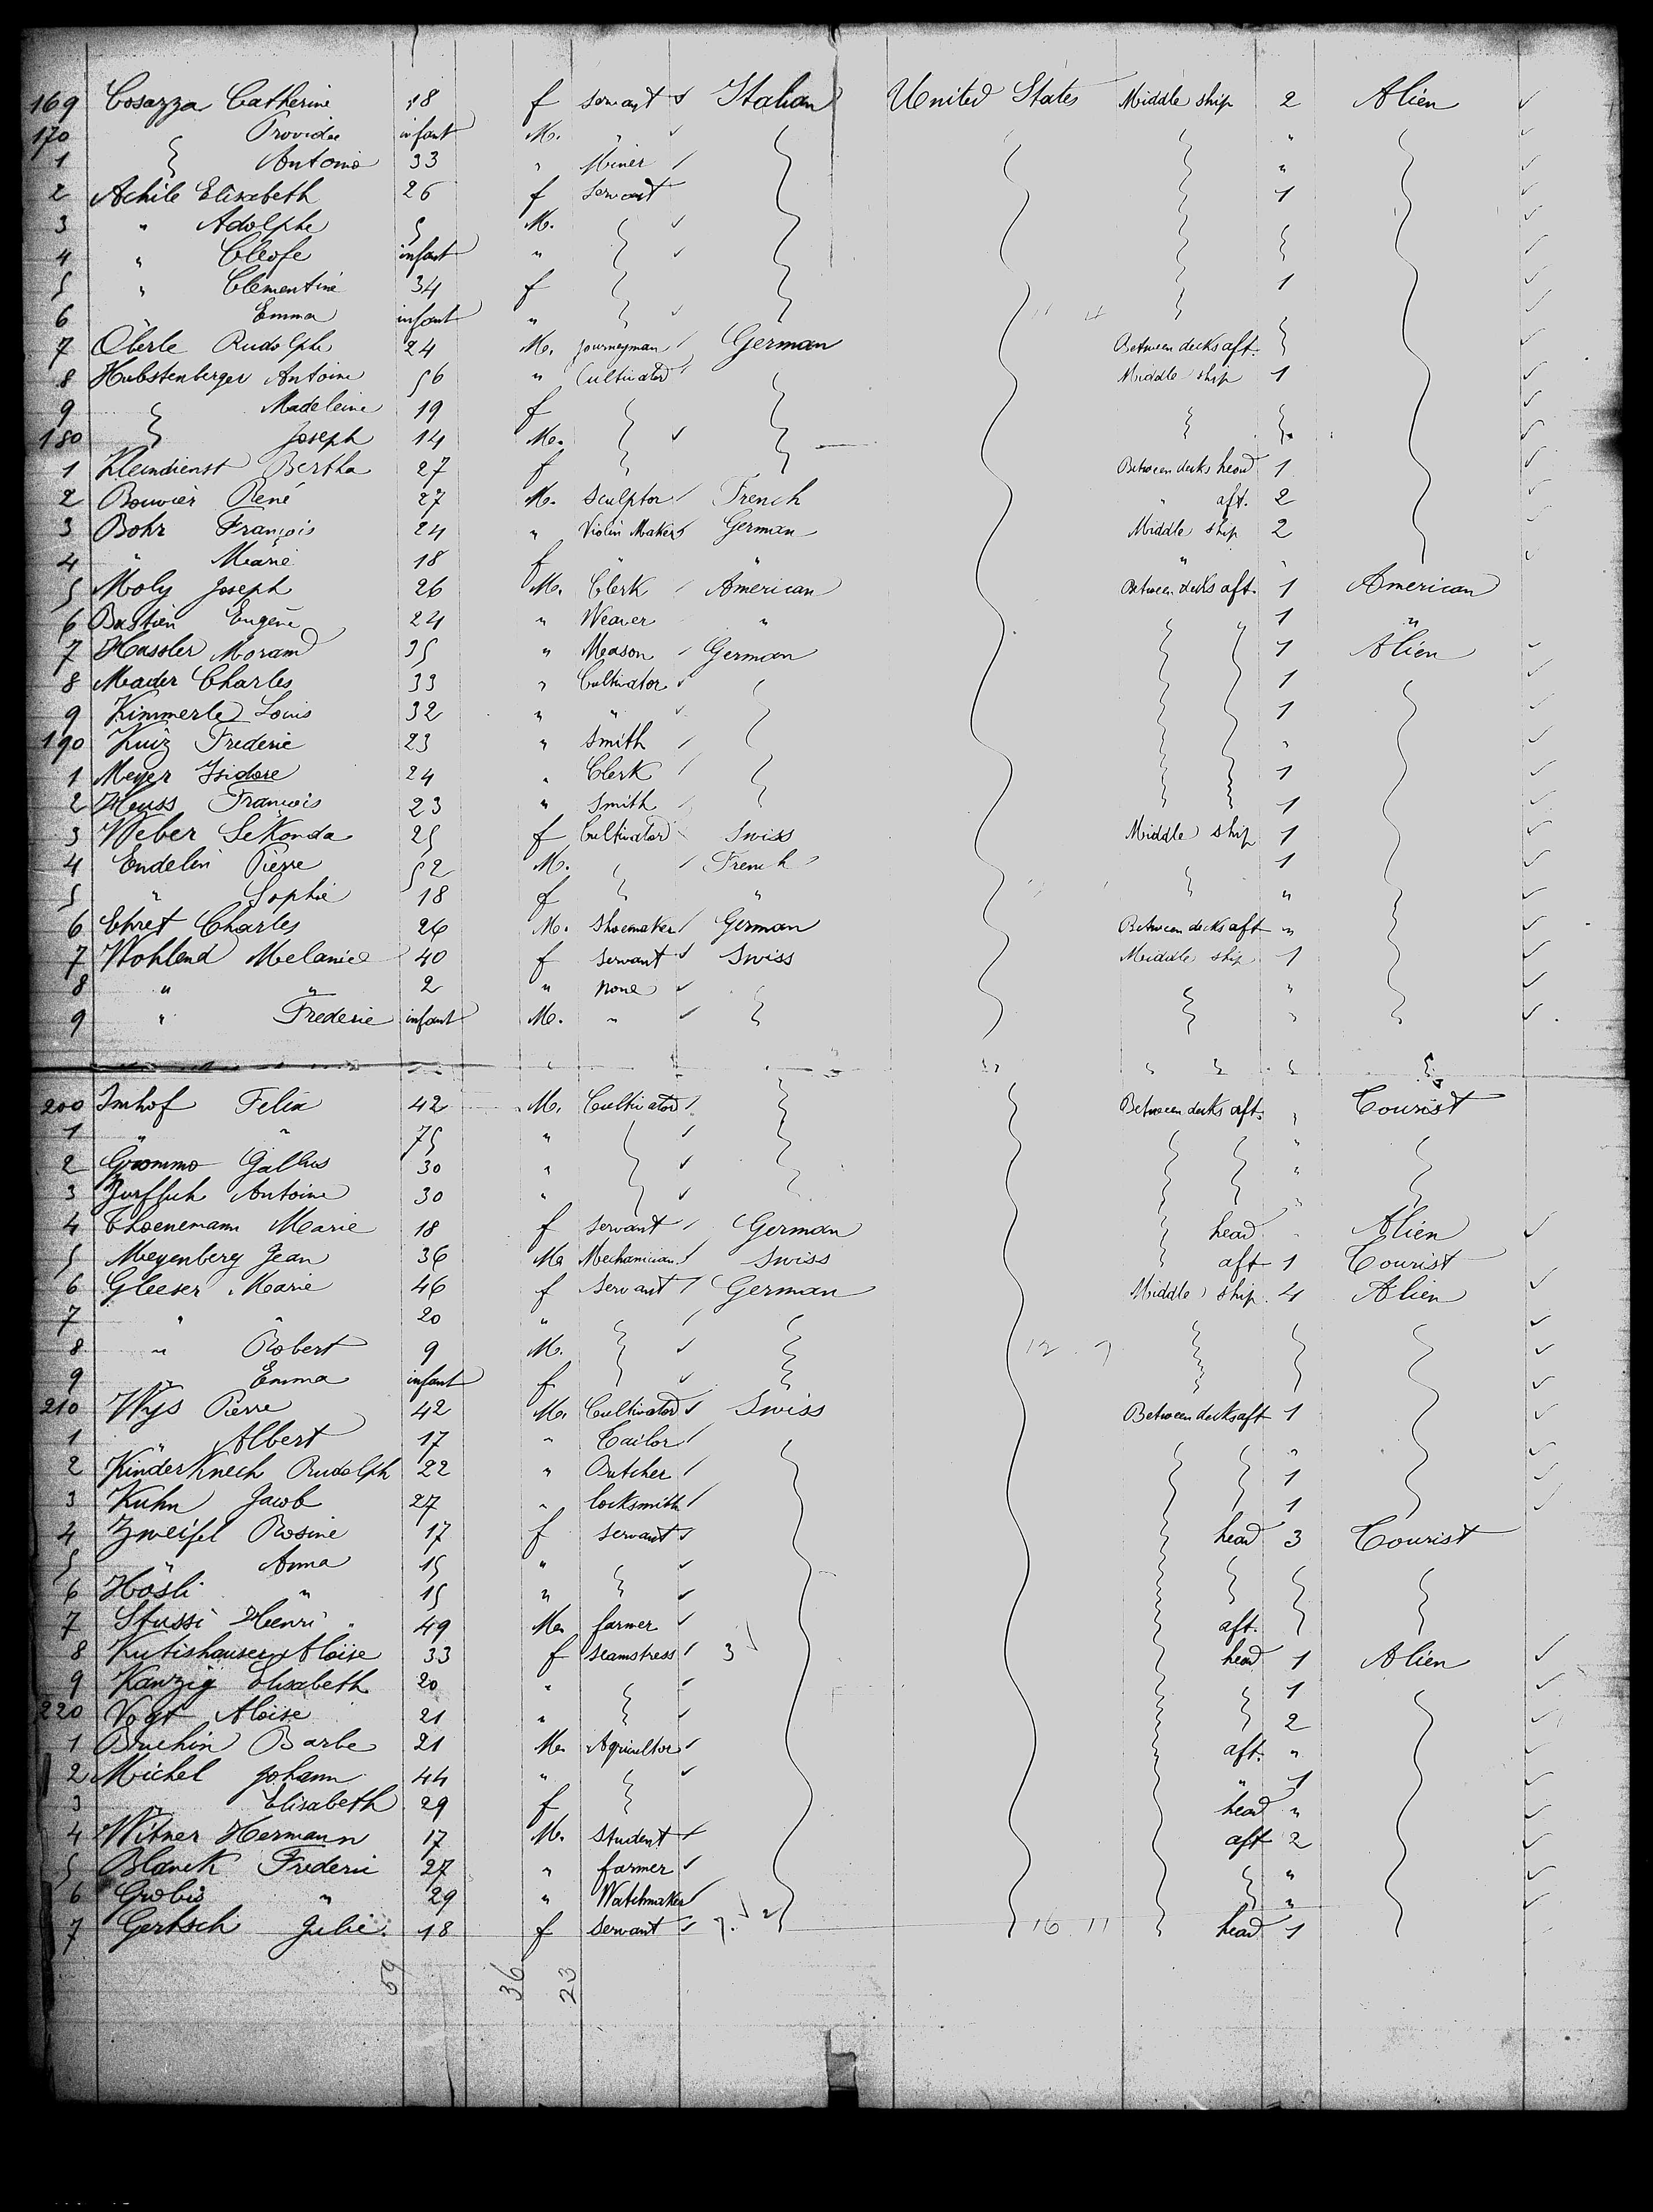 169 Cosazza Catherine 18 f servant Italian United States Middle ship 2 Alien
170 Providee infant M. "
1 Antonio 33 " Miner "
2 Achile Elisabeth 26 f servant 1
3 " Adolphe 5 M.
4 " Cleofe infant "
5 " Clementine 34 f 1
6 Emma infant "
7 Oberle Rudolphe 24 M. journeyman German Between decks aft.
8 Hubstenberger Antoine 56 " Cultivator Middle ship 1
9 Madeleine 19 f
180 Joseph 14 M.
1 Kleindienst Bertha 27 f Between decks head 1
2 Bouvier René 27 M. Sculptor French " aft. 2
3 Bohr François 24 " Violin Maker German Middle ship 2
4 " Marie 18 f " " "
5 Moly Joseph 26 M. Clerk American Between decks aft. 1 American
6 Bastien Eugène 24 " Weaver " 1 "
7 Hassler Morand 35 " Mason German 1 Alien
8 Mader Charles 33 " Cultivator 1
9 Kimmerle Louis 32 " " 1
190 Kuiz Frederic 23 " Smith "
1 Meyer Isidore 24 " Clerk 1
2 Heuss François 23 " Smith 1
3 Weber Sekonda 25 f Cultivator Swiss Middle ship 1
4 Endelin Pierre 52 M. French 1
5 " Sophie 18 f " "
6 Ehret Charles 26 M. Shoemaker German Between decks aft "
7 Wohlend Melanie 40 f servant Swiss Middle ship 1
8 " " 2 " none "
9 " Frederic infant M. " "
200 Imhof Felix 42 M. Cultivator Between decks aft. " Tourist
1 " " 75 " "
2 Grommo Gallus 30 " "
3 Zurfluh Antoine 30 " "
4 Thoenemann Marie 18 f servant German head " Alien
5 Meyenberg Jean 36 M. Mechanician Swiss aft 1 Tourist
6 Gleeser Marie 46 f servant German Middle ship 4 Alien
7 " " 20 "
8 " Robert 9 M.
9 " Emma infant f
210 Wys Pierre 42 M. Cultivator Swiss Between decks aft 1
1 " Albert 17 " Tailor "
2 Kinderknech Rudolph 22 " Butcher 1
3 Kuhn Jacob 27 " locksmith 1
4 Zweifel Rosine 17 f servant head 3 Tourist
5 " Anna 15 "
6 Hösli " 15 "
7 Stussi Henri 49 M. farmer aft.
8 Kutishauser Aloise 33 f seamstress 3 head 1 Alien
9 Kanzig Elisabeth 20 " 1
220 Vogt Aloise 21 " 2
1 Bruchin Barbe 21 M. Agricultor aft. "
2 Michel Johann 44 " " 1
3 " Elisabeth 29 f head "
4 Witner Hermann 17 M. Student aft 2
5 Blanck Frederic 27 " farmer "
6 Grobis " 29 " Watchmaker "
7 Gertsch Julie 18 f servant 16 11 head 1
59 36 23